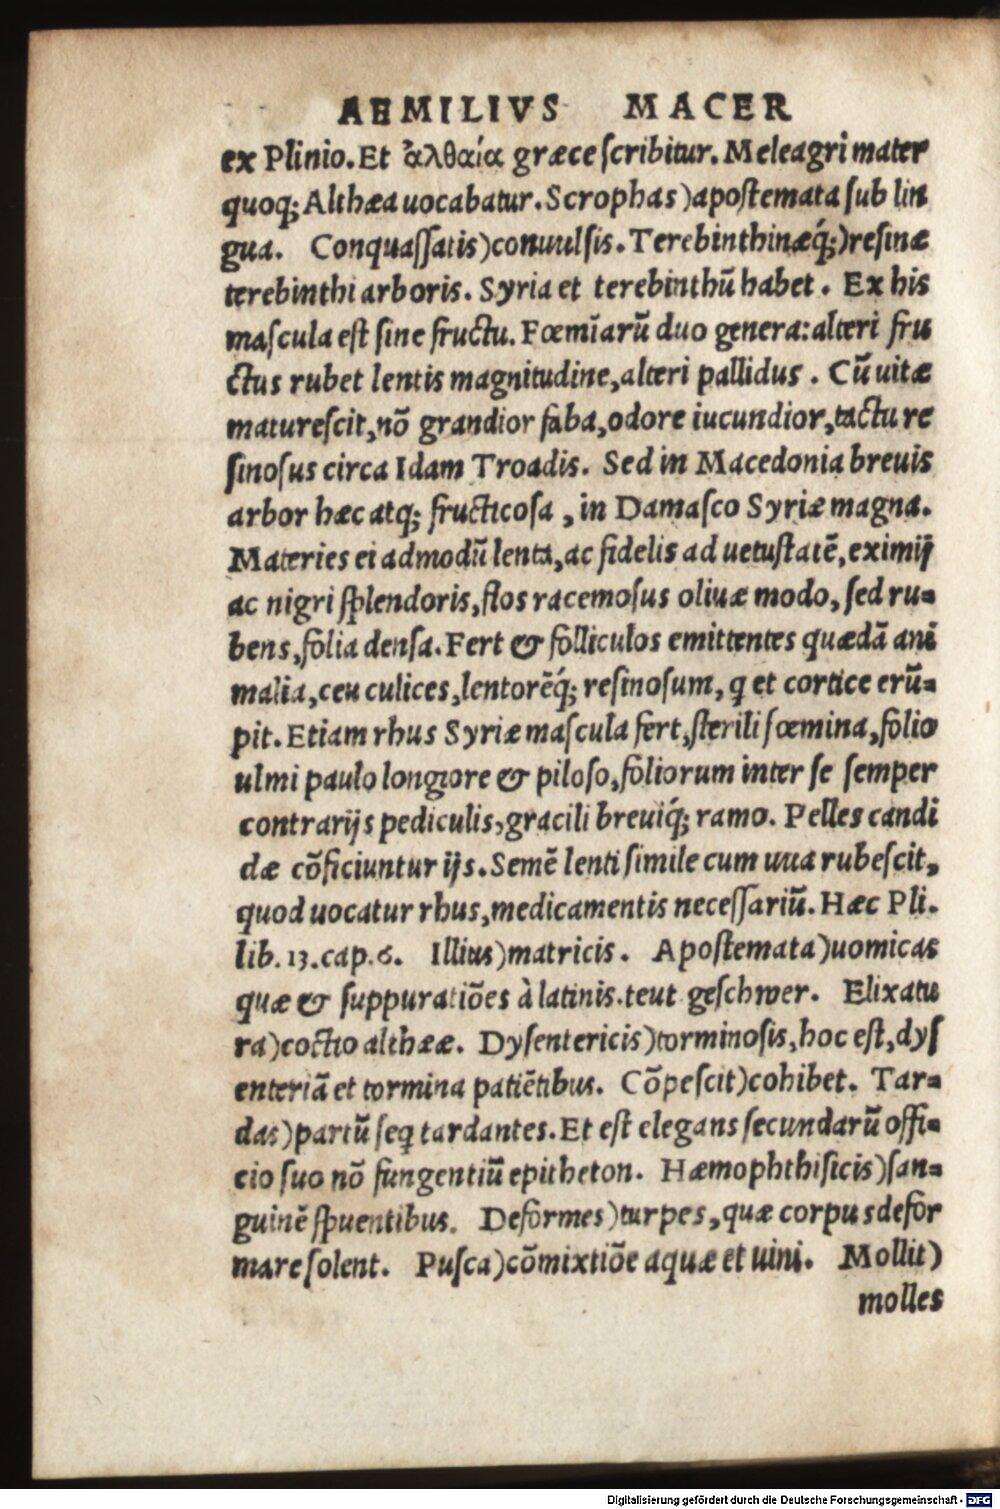 AEMILIVS MACER
ex Plinio. Et ἀλθαία græce ſcribitur. Meleagri mater
quoq; Althæa uocabatur. Scrophas) apoſtemata ſub lin
gua. Conquaſſatis) conuulſis. Terebinthinæq́;) reſinæ
terebinthi arboris. Syria et terebinthū habet. Ex his
maſcula eſt ſine fructu. Fœmīarū duo genera: alteri fru
ctus rubet lentis magnitudine, alteri pallidus. Cū uitæ
matureſcit, nō grandior faba, odore iucundior, tactu re
ſinoſus circa Idam Troadis. Sed in Macedonia breuis
arbor hæc atq; fructicoſa, in Damaſco Syriæ magna.
Materies ei admodū lenta, ac fidelis ad uetuſtatē, eximij
ac nigri ſplendoris, flos racemoſus oliuæ modo, ſed ru-
bens, folia denſa. Fert & folliculos emittentes quædā ani
malia, ceu culices, lentorēq́; reſinoſum, q et cortice erū-
pit. Etiam rhus Syriæ maſcula fert, ſterili fœmina, folio
ulmi paulo longiore & piloſo, foliorum inter ſe ſemper
contrarijs pediculis, gracili breuiq́; ramo. Pelles candi
dæ cōficiuntur ijs. Semē lenti ſimile cum uua rubeſcit,
quod uocatur rhus, medicamentis neceſſariū. Hæc Pli.
lib. 13. cap. 6. Illius) matricis. Apoſtemata) uomicas
quæ & ſuppuratiōes à latinis. teut geſchwer. Elixatu
ra) coctio althææ. Dyſentericis) torminoſis, hoc eſt, dyſ
enteriā et tormina patiētibus. Cōpeſcit) cohibet. Tar-
das) partū ſeq tardantes. Et eſt elegans ſecundarū offi-
cio ſuo nō fungentiū epitheton. Hæmophthiſicis) ſan-
guinē ſpuentibus. Deformes) turpes, quæ corpus defor
mare ſolent. Puſca) cōmixtiōe aquæ et uini. Mollit)
molles
Digitalisierung gefördert durch die Deutsche Forschungsgemeinschaft - DFG